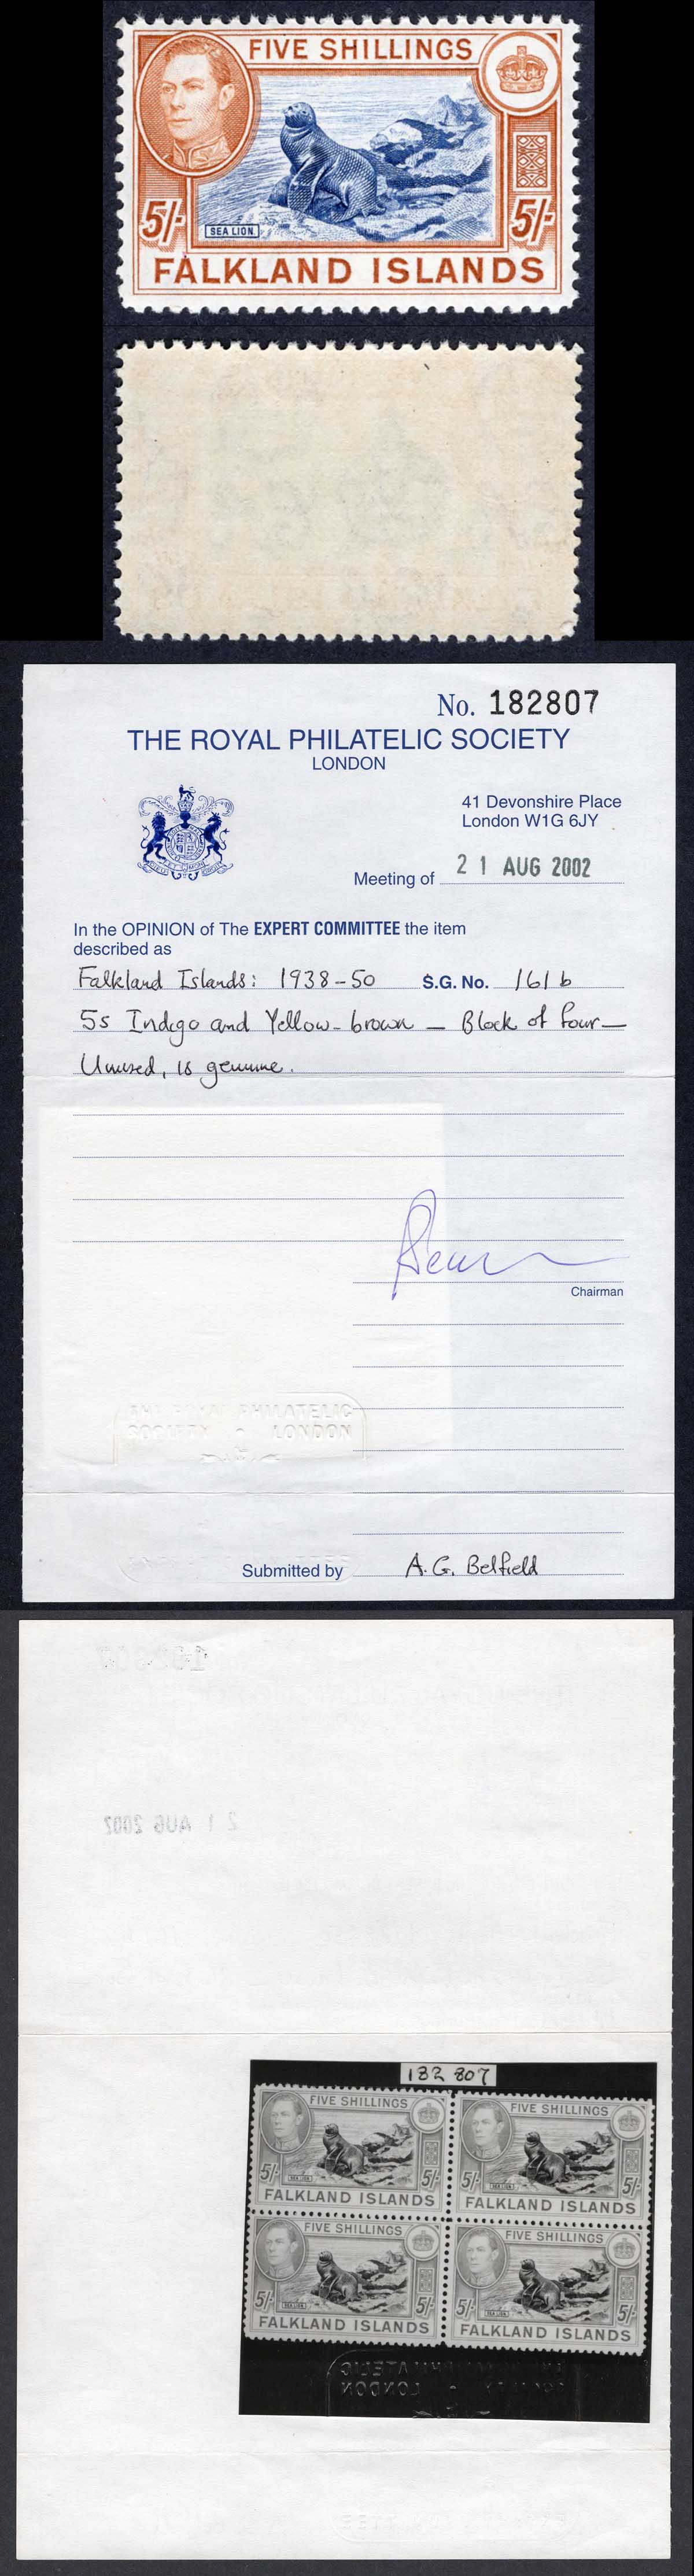 FIVE SHILLINGS
5/-
5/-
SEA LION
FALKLAND ISLANDS
No. 182807
THE ROYAL PHILATELIC SOCIETY
LONDON
41 Devonshire Place
London W1G 6JY
Meeting of 21 AUG 2002
In the OPINION of The EXPERT COMMITTEE the item
described as
Falkland Islands: 1938-50 S.G. No. 161b
5s Indigo and Yellow-brown — Block of four —
Unused, is genuine.
Chairman
THE ROYAL PHILATELIC
SOCIETY LONDON
Submitted by A.G. Belfield
21 AUG 2002
182 807
FIVE SHILLINGS
5/-
5/-
SEA LION
FALKLAND ISLANDS
FIVE SHILLINGS
5/-
5/-
SEA LION
FALKLAND ISLANDS
FIVE SHILLINGS
5/-
5/-
SEA LION
FALKLAND ISLANDS
FIVE SHILLINGS
5/-
5/-
SEA LION
FALKLAND ISLANDS